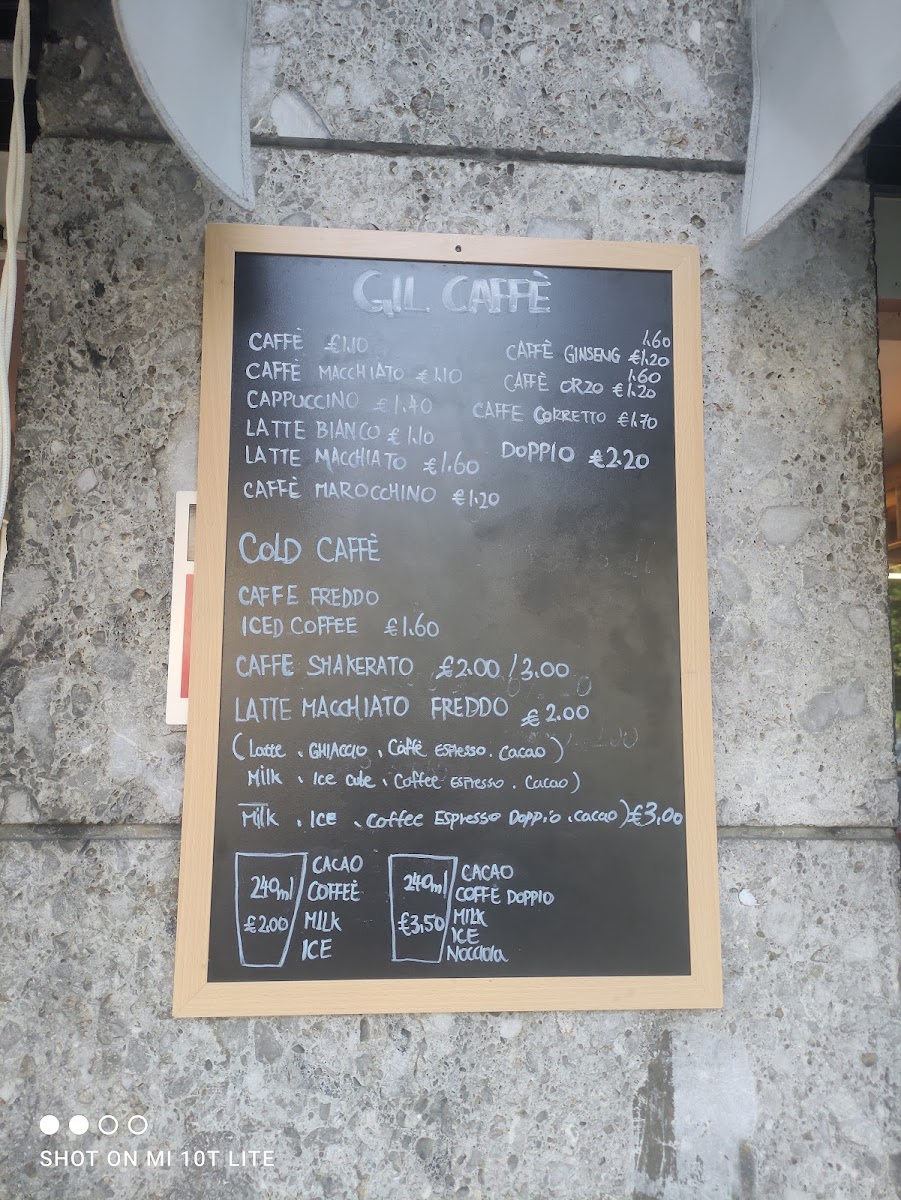 GIL CAFFÈ
CAFFÈ €1.10
CAFFÈ MACCHIATO €1.10
CAPPUCCINO €1.40
LATTE BIANCO €1.10
LATTE MACCHIATO €1.60
CAFFÈ MAROCCHINO €1.20
1.60
CAFFÈ GINSENG €1.20
1.60
CAFFÈ ORZO €1.20
CAFFE CORRETTO €1.70
DOPPIO €2.20
COLD CAFFÈ
CAFFE FREDDO
ICED COFFEE €1.60
CAFFE SHAKERATO €2.00/3.00
LATTE MACCHIATO FREDDO €2.00
(Latte, GHIACCIO, Caffè ESPRESSO, cacao)
Milk, Ice Cube, Coffee ESPRESSO, Cacao)
Milk, ICE, Coffee Espresso Doppio, cacao) €3,00
240ml
€2.00
CACAO
COFFEÈ
MILK
ICE
240ml
€3,50
CACAO
COFFÈ DOPPIO
MILK
ICE
NOCCIOLA
SHOT ON MI 10T LITE